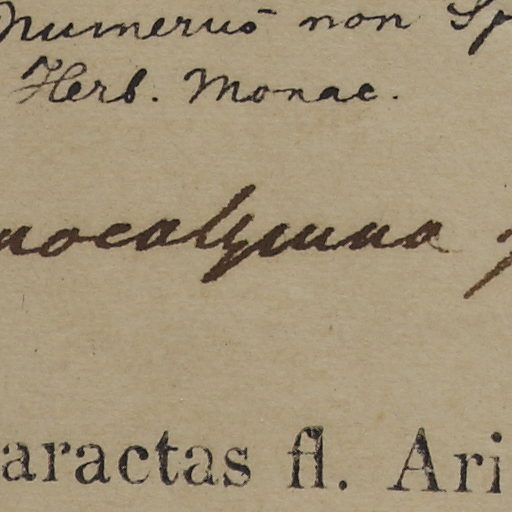 Numerus non Sp
Herb. Monac.
nocalymna
aractas fl. Ari